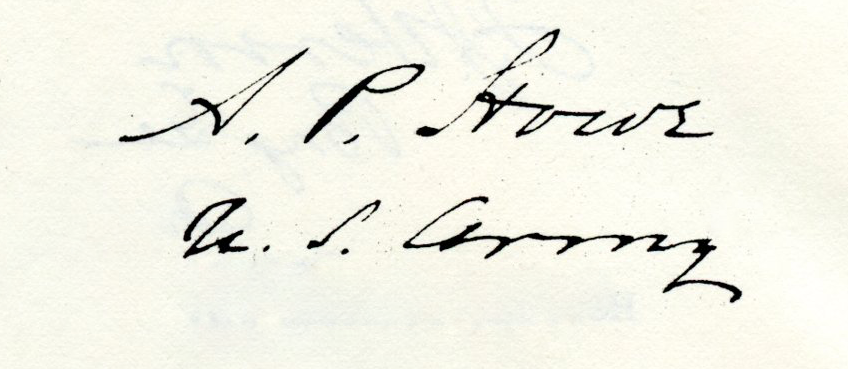 A. P. Howe
U. S. Army